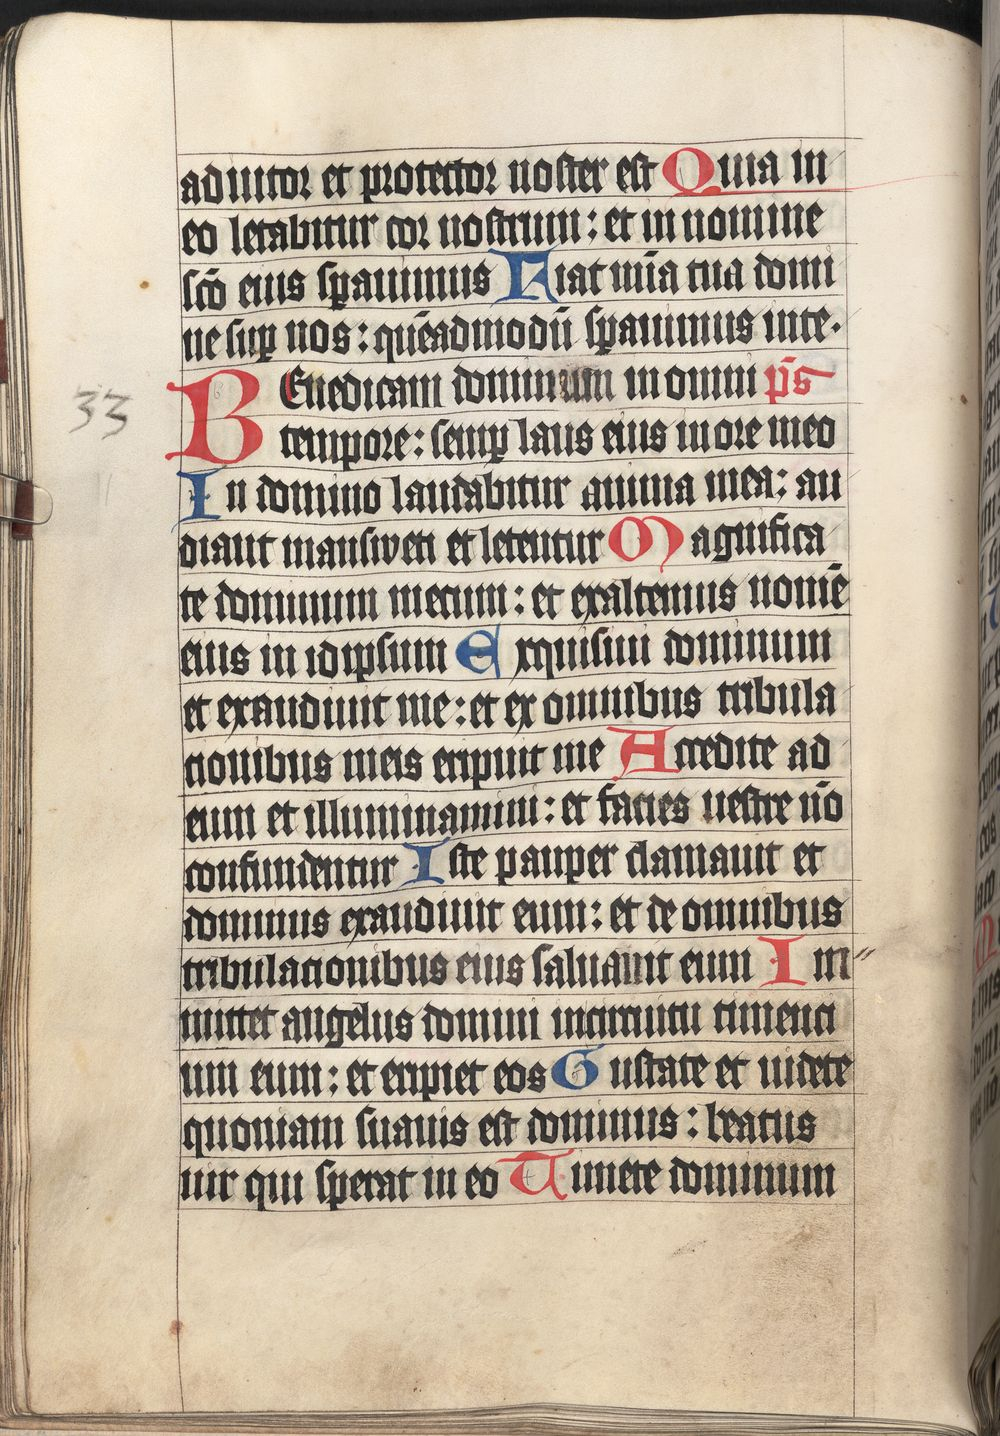 adiutor et protector noster est Quia in
eo letabitur cor nostrum: et in nomine
sc̄o eius sꝑauimus Fiat mīa tua domi
ne suꝑ nos: quēadmodū sꝑauimus in te.
BEnedicam dominum in omni p̄s
33
tempore: semꝑ laus eius in ore meo
In domino laudabitur anima mea: au
diant mansweti et letentur Magnifica
te dominum mecum: et exaltemus nomē
eius in idipsum Exquisiui dominum
et exaudiuit me: et ex omnibus tribula
tionibus meis eripuit me Accedite ad
eum et illuminamini: et facies uestre nō
confundentur Iste pauper clamauit et
dominus exaudiuit eum: et de omnibus
tribulationibus eius saluauit eum Im
mittet angelus domini in circuitu timenti
um eum: et eripiet eos Gustate et uidete
quoniam suauis est dominus: beatus
uir qui sperat in eo Timete dominum